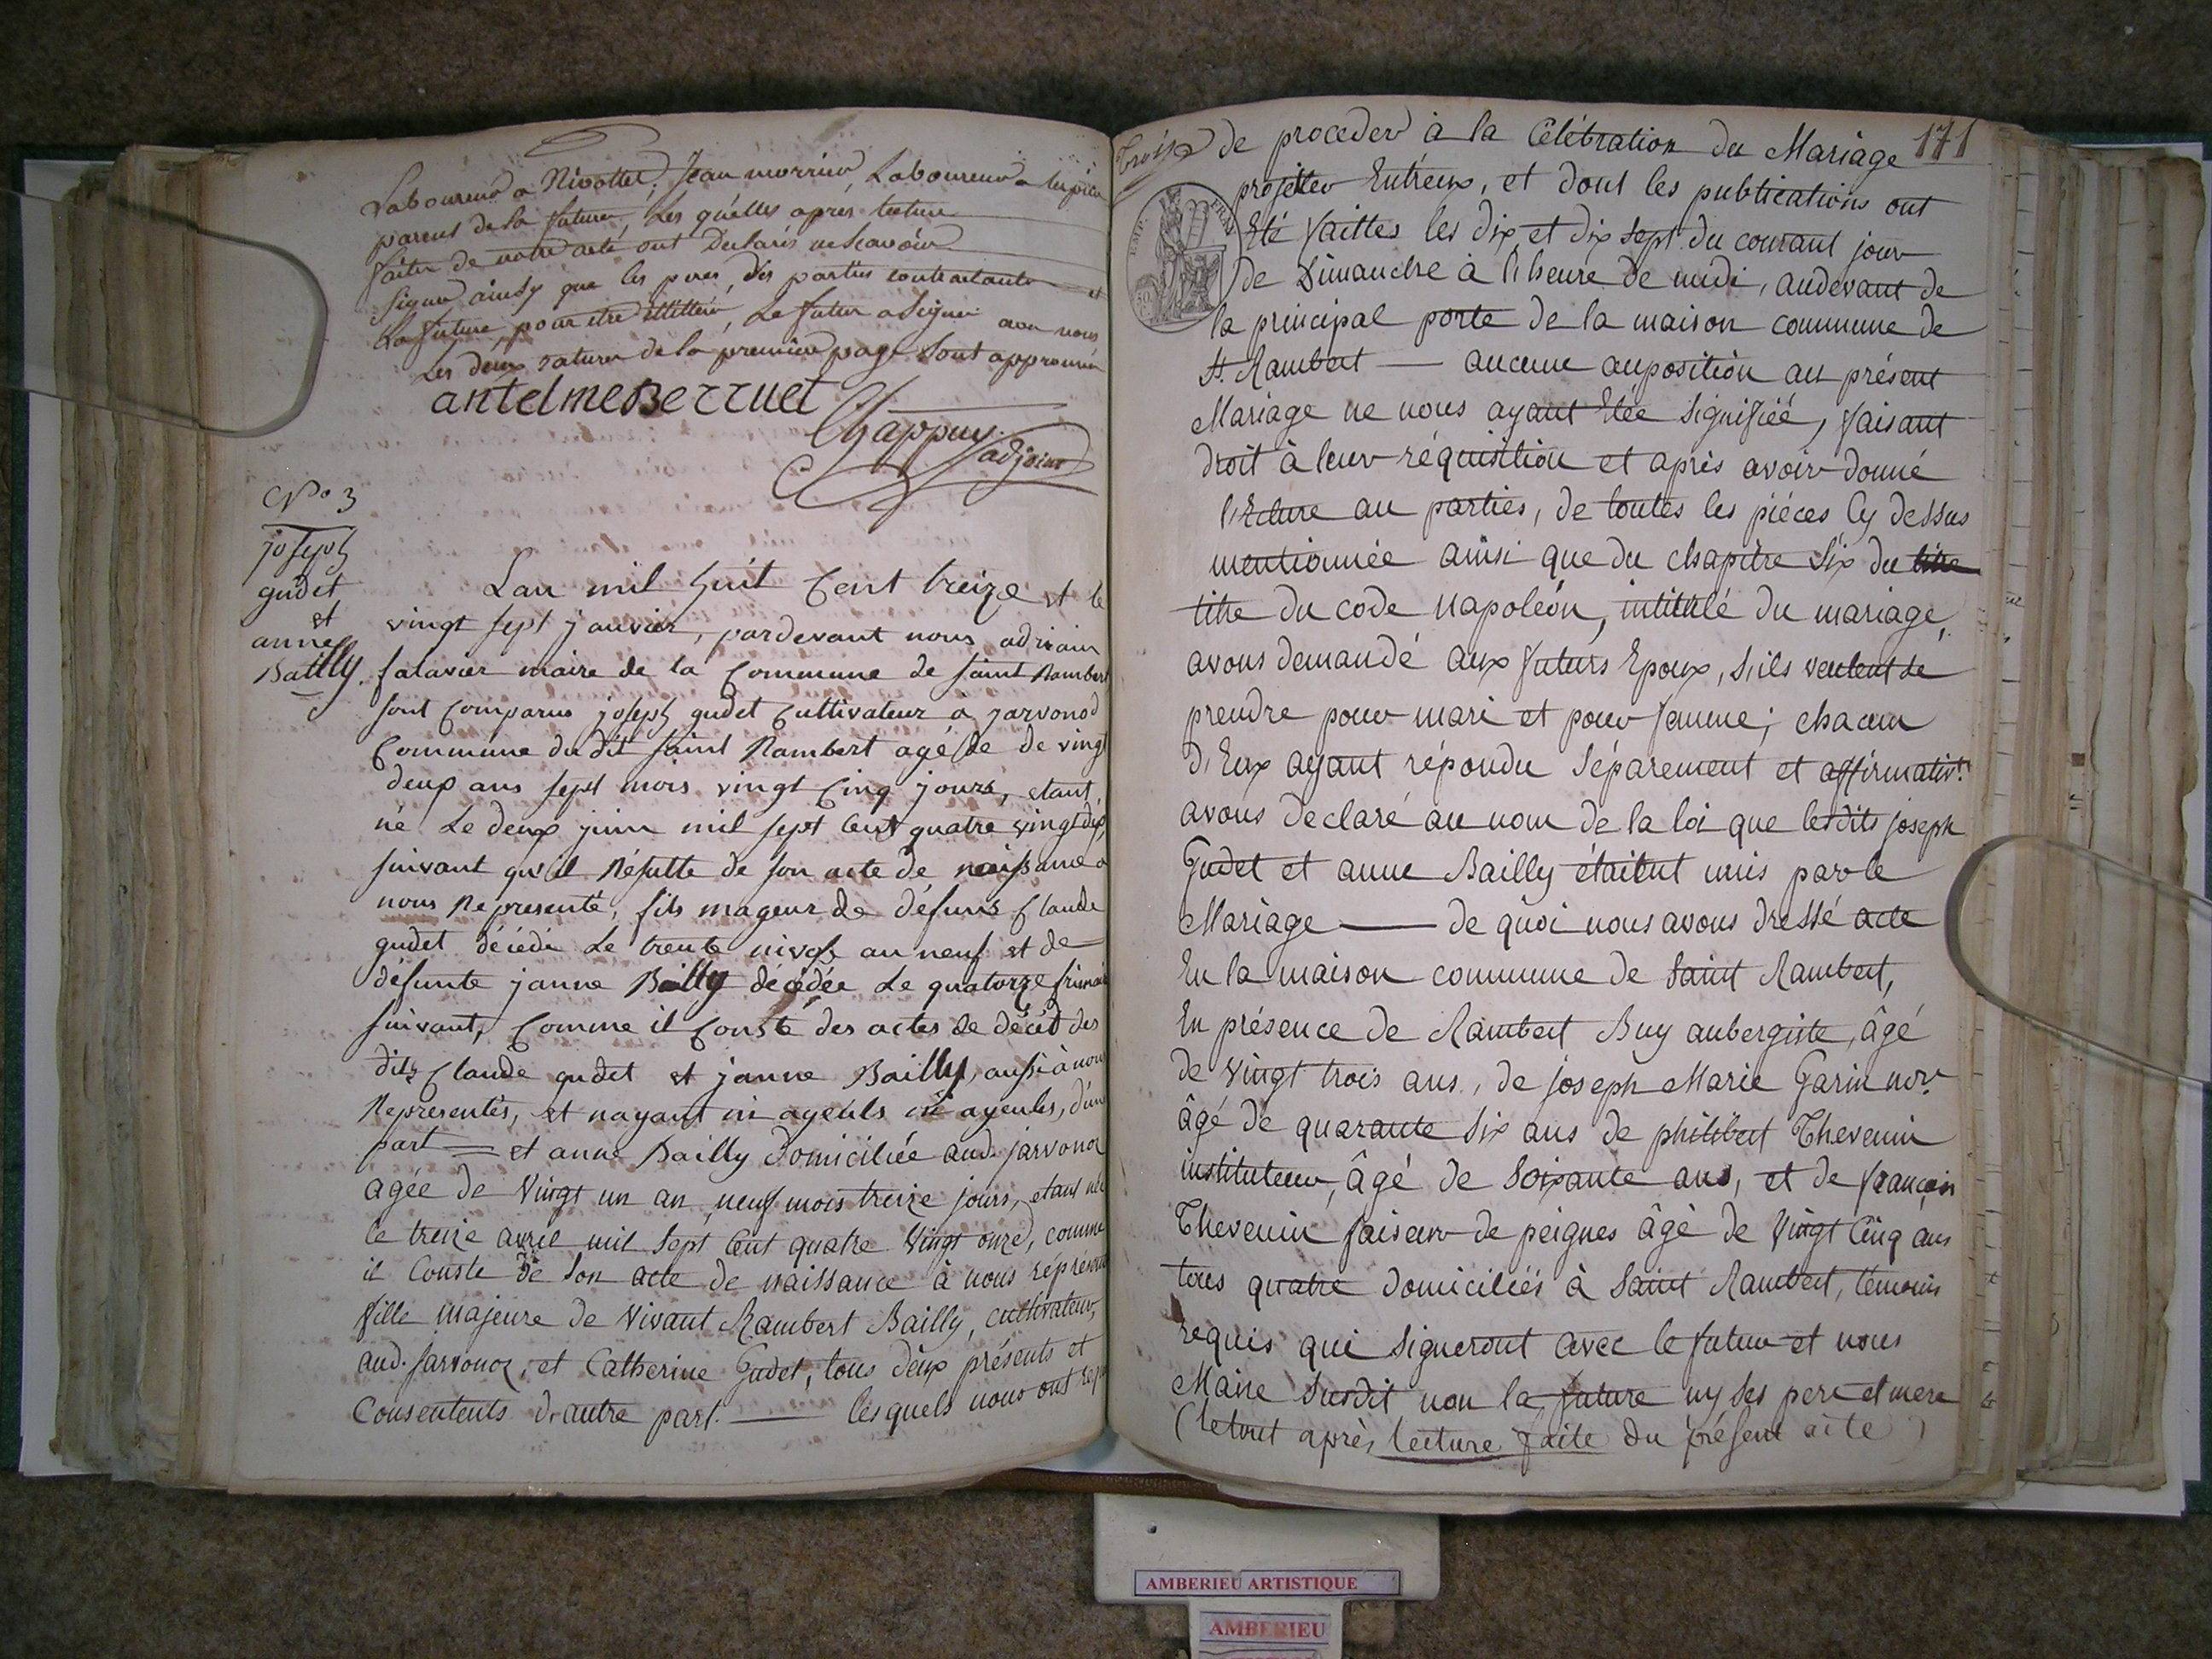 Laboureur a Nivollet, Jean morrier, Laboureur a
parent de la future, Les quelles apres lecture
faite de notre acte, ont Declarés ne scavoir
signer ainsy que les peres, des parties contractantes et
La future, pour etre illitteré, Le futur a signer avec nous
Les deux ratures de la premiere page sont approuvée
antelme Berruet
Chappuy
adjoint
N° 3
joseph
gudet
et
anne
Bailly.
Lan mil huit Cent treize et le
vingt sept janvier, pardevant nous adriain
falavier maire de la Commune de saint Rambert
sont Comparus joseph gudet Cultivateur a jarvonod
Commune du dit saint Rambert agé de de vingt
deux ans sept mois vingt Cinq jours, etant
né Le deux juin mil sept Cent quatre vingt dix,
suivant qu'il Résulte de son acte de naissance a
nous Representé, fils mageur de défunt Claude
gudet décédé Le trente nivose an neuf et de
défunte janne Bailly décédée Le quatorze frimaire
suivant, Comme il Conste des actes de décéd des
dits Claude gudet et janne Bailly, aussi à nous
Representés, et nayant ni ayeuls ni ayeules, d'une
part — et anne Bailly Domiciliée aud. jarvonoz
agée de Vingt un an neuf mois treize jours, etant née
le treize avril mil Sept Cent quatre Vingt onze, comme
il Conste de Son acte de naissance à nous réprésenté
fille majeure de Vivant Rambert Bailly, cultivateur,
aud. jarvonoz, et Catherine Gudet, tous deux présents et
Consentents d'autre part. — lesquels nous ont requis
Troise
171
de proceder à la Célébration du Mariage
projetter Entr'eux, et dont les publications ont
Eté faittes les dix et dix sept du courant jour
de Dimanche à l'heure de midi, audevant de
la principal porte de la maison commune de
St. Rambert — aucune auposition au présent
Mariage ne nous ayant Etée Signifiéé, faisant
droit à leur réquisition et après avoir donné
l'Ecture au parties, de toutes les piéces Cy dessus
mentionnée ainsi que du chapitre Six du titre
titre du code Napoléon, intitulé du mariage,
avons demandé aux futurs Epoux, s'ils veulent se
prendre pour mari et pour femme; chacun
d'Eux ayant répondu Séparement et affirmativt.
avons declaré au nom de la loi que lesdits joseph
Gudet et anne Bailly étaient unis par le
Mariage — de quoi nous avons dressé acte
En la maison commune de Saint Rambert,
En présence de Rambert Buy aubergiste, âgé
de Vingt trois ans, de joseph Marie Garin nore.
âgé de quarante Six ans de philibert Thevenin
instituteur, âgé de Soixante ans, et de françois
Thevenin faiseur de peignes âgé de Vingt Cinq ans
tous quatre domiciliés à Saint Rambert, témoins
requis qui Signeront avec le futur et nous
Maire Susdit non la future ny Ses pere et mere
(le tout après lecture faite du présent acte)
AMBERIEU ARTISTIQUE
AMBERIEU